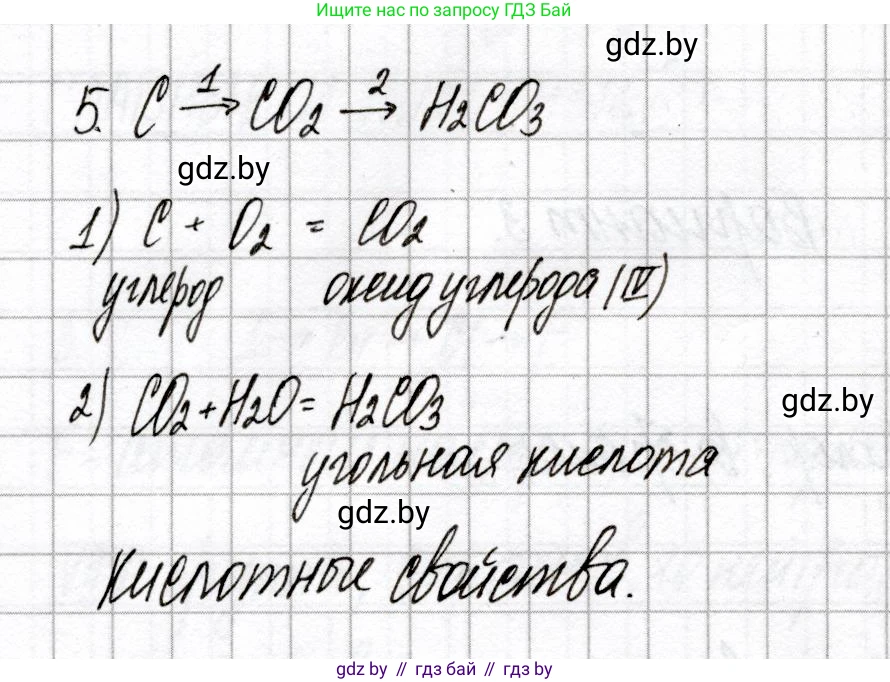 Ищите нас по запросу ГДЗ Бай
gdz.by
5. C 1→ CO2 2→ H2CO3
gdz.by
1) C + O2 = CO2
углерод оксид углерода (IV)
2) CO2 + H2O = H2CO3
gdz.by
угольная кислота
gdz.by
Кислотные свойства.
gdz by // гдз бай // гдз by